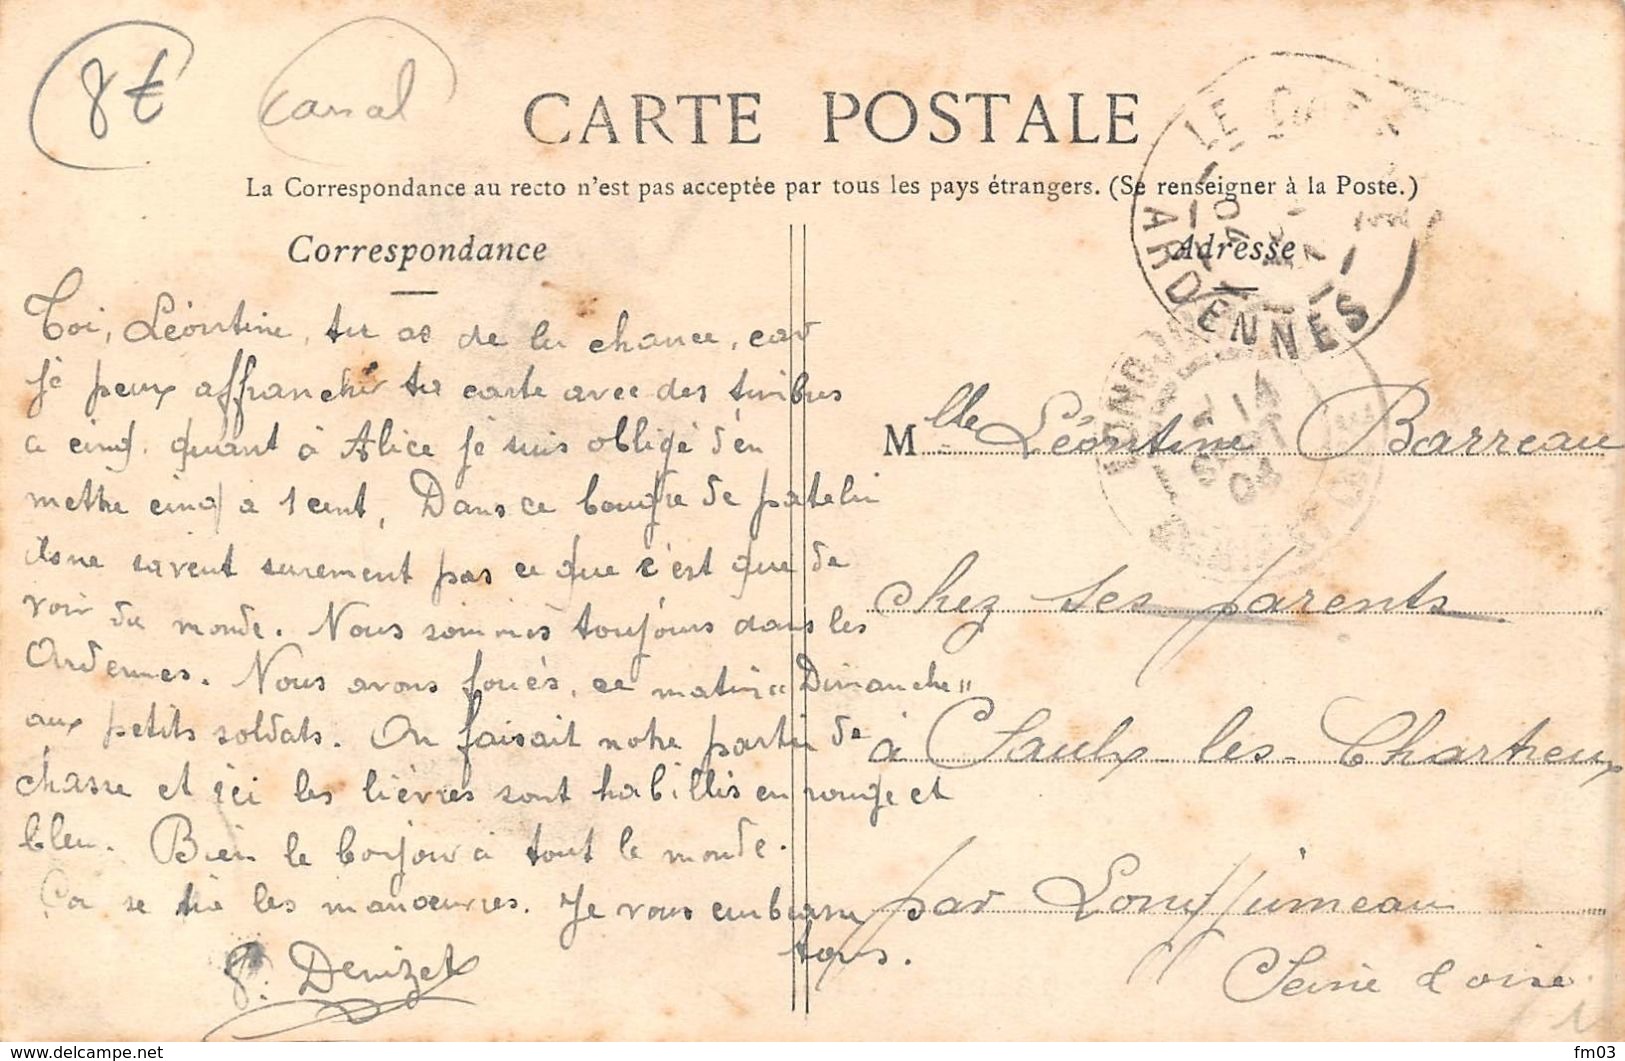 8€
canal
CARTE POSTALE
La Correspondance au recto n'est pas acceptée par tous les pays étrangers. (Se renseigner à la Poste.)
Correspondance
Toi, Léontine, tu as de la chance, car
je peux affranchir ta carte avec des timbres
a cinq. quant à Alice je suis obligé d'en
mettre cinq a 1 cent, Dans ce bougre de patelin
ils ne savent surement pas ce que c'est que de
voir du monde. Nous sommes toujours dans les
Ardennes. Nous avons joués, ce matin "Dimanche"
aux petits soldats. On faisait notre partie de
chasse et ici les lièvres sont habillés en rouge et
bleu. Bien le bonjour à tout le monde.
Ça se tire les manoeuvres. Je vous embrasse
tous.
Denizet
Adresse
LE
ARDENNES
04
LONGJUMEAU
SEPT
04
Mlle Léontine Barreau
chez ses parents
à Saulx-les-Chartreux
par Longjumeau
Seine d'oise
fm03